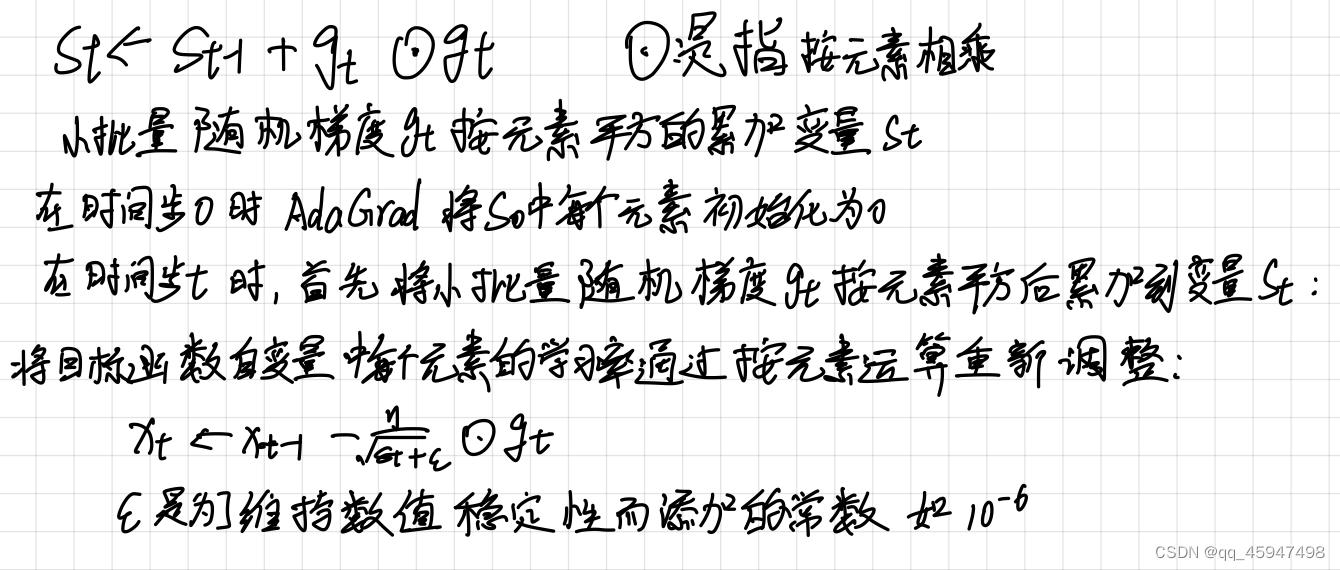 St ← St-1 + gt ⊙ gt ⊙是指按元素相乘
小批量随机梯度gt按元素平方的累加变量St
在时间步0时 AdaGrad 将S0中每个元素初始化为0
在时间步t时,首先将小批量随机梯度gt按元素平方后累加到变量St:
将目标函数自变量中每个元素的学习率通过按元素运算重新调整:
xt ← xt-1 - η/√(St+ε) ⊙ gt
ε是为了维持数值稳定性而添加的常数 如10⁻⁶
CSDN @qq_45947498